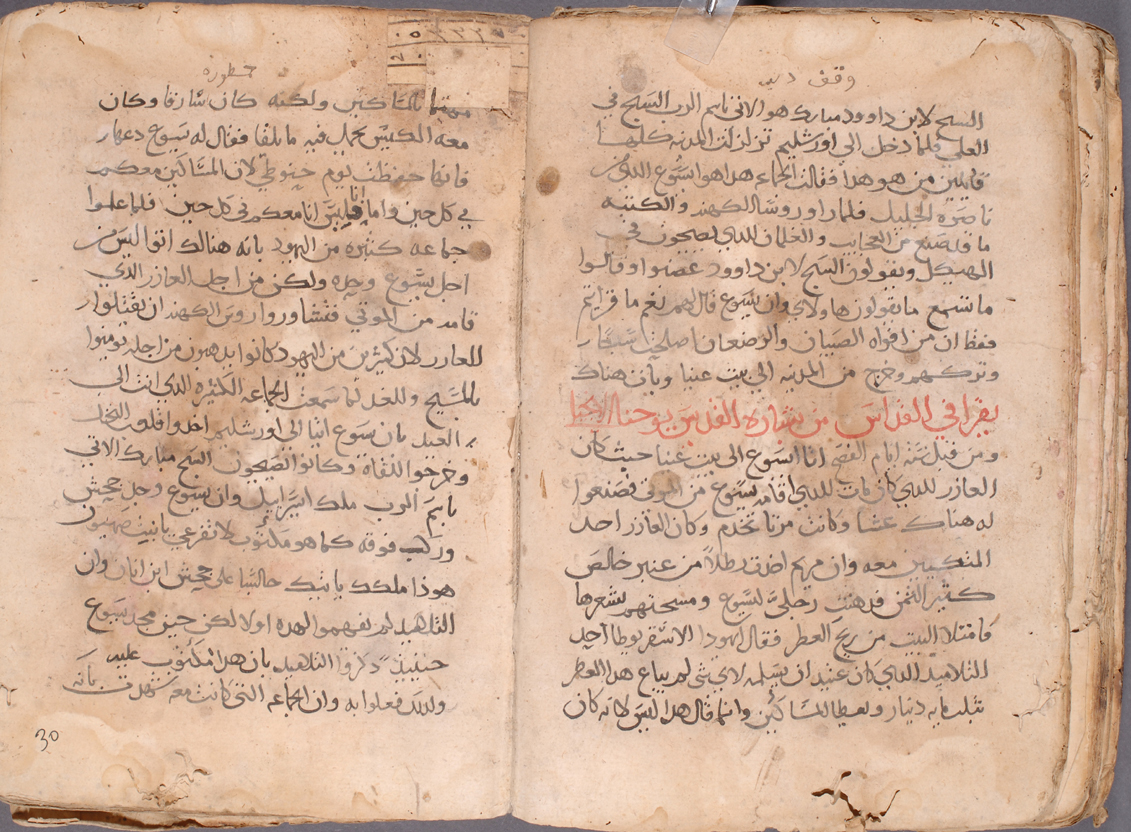 وقف دير
السبح لابن داوود مبارك هو الاتى باسم الرب السبح في
العلي فلما دخل الى اورشليم تزلزلت المدينه كلها
قايلين من هو هدا فقالت الجماعه هدا هو ايسوع الدي من
ناصرة الجليل فلما راو روسا الكهنه والكتبه
ما قد صنع من العجايب والغلمان الدي يصيحون في
الهيكل ويقولون السبح لابن داوود غضبوا وقالوا
ما تسمع ما يقولون هاولاي وان يسوع قال لهم نعم ما قراتم
قط ان من افواه الصبيان والرضعان اصلحت سبحا
وتركهم وخرج من المدينه الى بيت عنيا وبات هناك
يقرا في القداس من بشاره القديس يوحنا
ومن قبل ستة ايام الفصح اتا ايسوع الى بيت عنيا حيث كان
العازر الدي كان مات الدي اقامه يسوع من الموتى فصنعوا
له هناك عشا وكانت مرتا تخدم وكان العازر احد
المتكيين معه وان مريم اخدت رطلاً من عنبر خالص
كثير الثمن فدهنت رجلي يسوع ومسحتهم بشعرها
فامتلا البيت من ريح العطر فقال يهودا الاسقريوطا احد
التلاميد الدي كان عتيد ان يسلمه لاي شي لم يباع هدا العطر
بثلثمايه دينار ويعطا للمساكين وانما قال هدا ليس لانه كان
مهتما بالمساكين ولكنه كان سارقا وكان
معه الكيس يحمل فيه ما يلقا فقال له يسوع دعها
فانها حفظته ليوم حنوطي لان المساكين معكم
في كل حين واما انا فليس انا معكم في كل حين فلما علموا
جماعه كثيره من اليهود بانه هنالك اتوا ليس من
اجل يسوع وحده ولكن من اجل العازر الدي
قامه من الموتى فتشاوروا روسا الكهنه ان يقتلوا
العازر لان كثيرين من اليهود كانوا يدهبون من اجله يومنوا
بالمسيح وللغد لما سمعت الجماعه الكثيره الدي اتت الى
العيد بان يسوع اتيا الى اورشليم اخدوا قلوب النخل
وخرجوا للقاه وكانوا يصيحون السبح مبارك الاتي
باسم الرب ملك اسراييل وان يسوع وجد جحش
وركب فوقه كما هو مكتوب لا تفزعي يا بنت صهيون
هودا ملكك ياتيك جالسا على جحش ابن اتان وان
التلاميد لم يفهموا الهده اولا لكن حين مجد يسوع
حينيد دكروا التلاميد بان هدا مكتوب عليه
ولدلك فعلوا به وان الجماعه التي كانت معه شهدت بانه
30